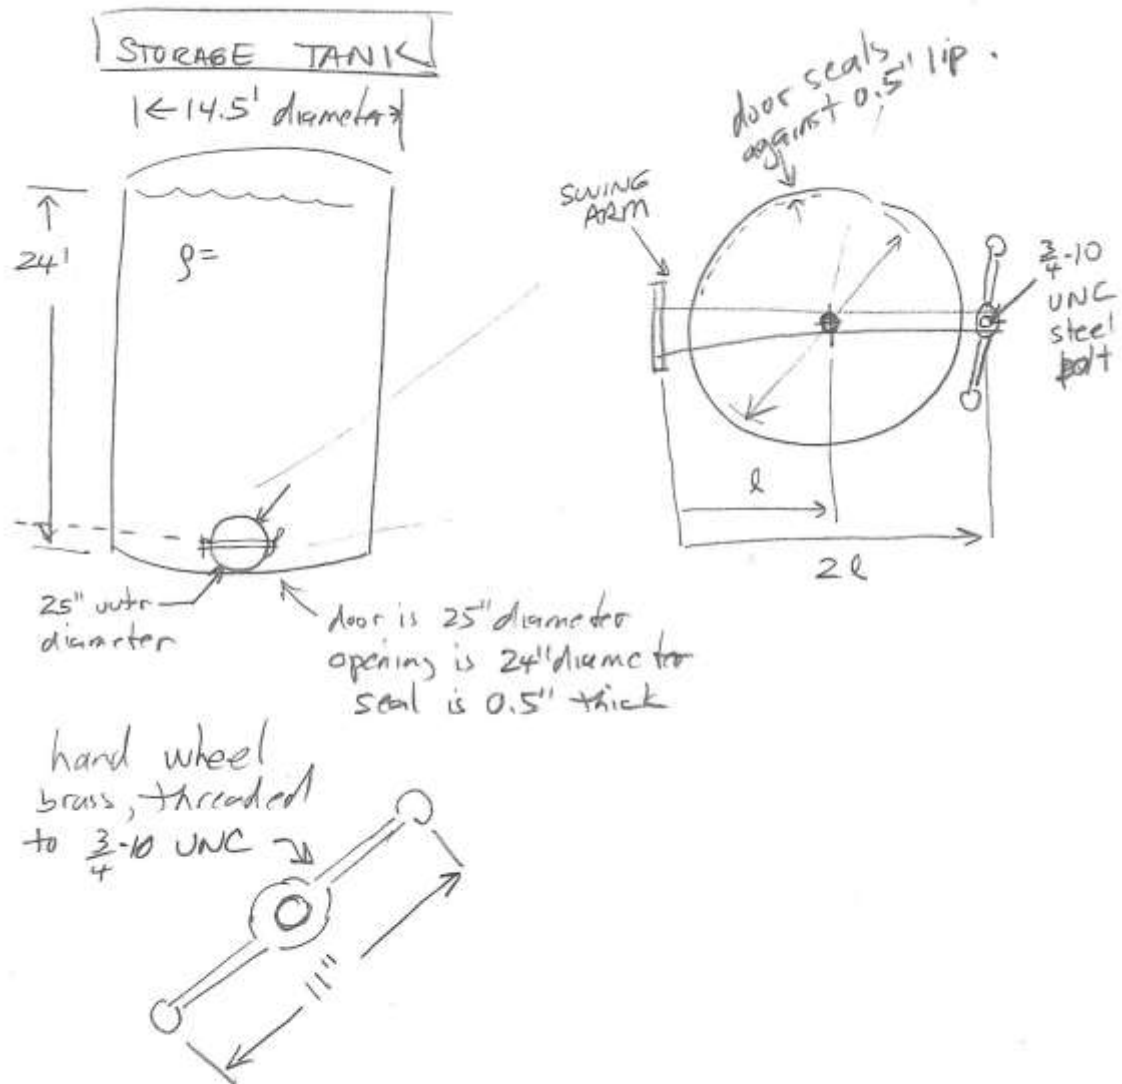 STORAGE TANK
|← 14.5' diameter →|
24'
ρ=
25" outr
diameter
door is 25" diameter
opening is 24" diameter
seal is 0.5" thick
door seals
against 0.5" lip.
SWING
ARM
3/4-10
UNC
steel
bolt
l
2l
hand wheel
brass, threaded
to 3/4-10 UNC
11"